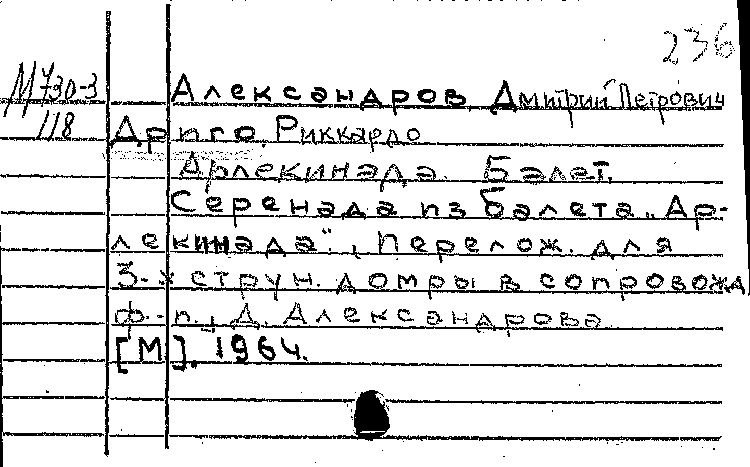 236
М730-3 Александров, Дмитрий Петрович
118 Дриго, Риккардо
Арлекинада. Балет.
Серенада из балета „Ар-
лекинада", перелож. для
3-х струн. домры в сопровожд
ф.-п., Д. Александрова
[М]. 1964.